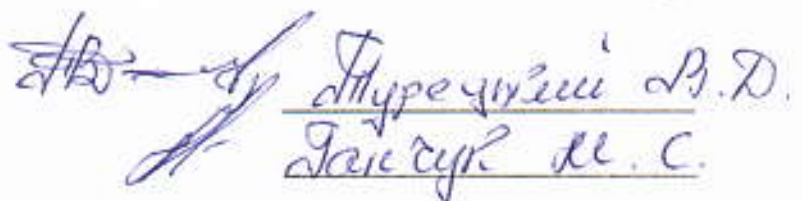 Турецкий В.Д.
Ганчук М.С.